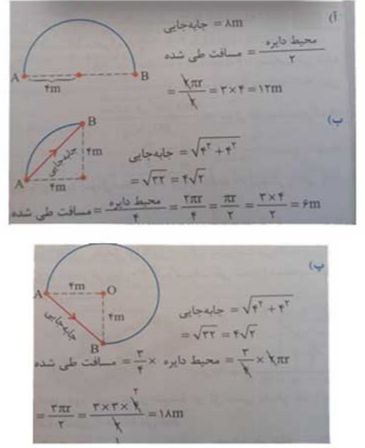 آ)
جابه‌جایی = ۸m
مسافت طی شده = محیط دایره / ۲
= ۲πr / ۲ = ۳×۴ = ۱۲m
A ۴m B
ب)
جابه‌جایی = √۴² + ۴²
= √۳۲ = ۴√۲
مسافت طی شده = محیط دایره / ۴ = ۲πr / ۴ = πr / ۲ = ۳×۴ / ۲ = ۶m
B
جابه‌جایی ۴m
A ۴m
پ)
جابه‌جایی = √۴² + ۴²
= √۳۲ = ۴√۲
مسافت طی شده = ۳/۴ × محیط دایره = ۳/۴ × ۲πr
= ۳πr / ۲ = ۳×۳×۴ / ۲ = ۱۸m
۲
۱
A ۴m O
جابه‌جایی ۴m
B